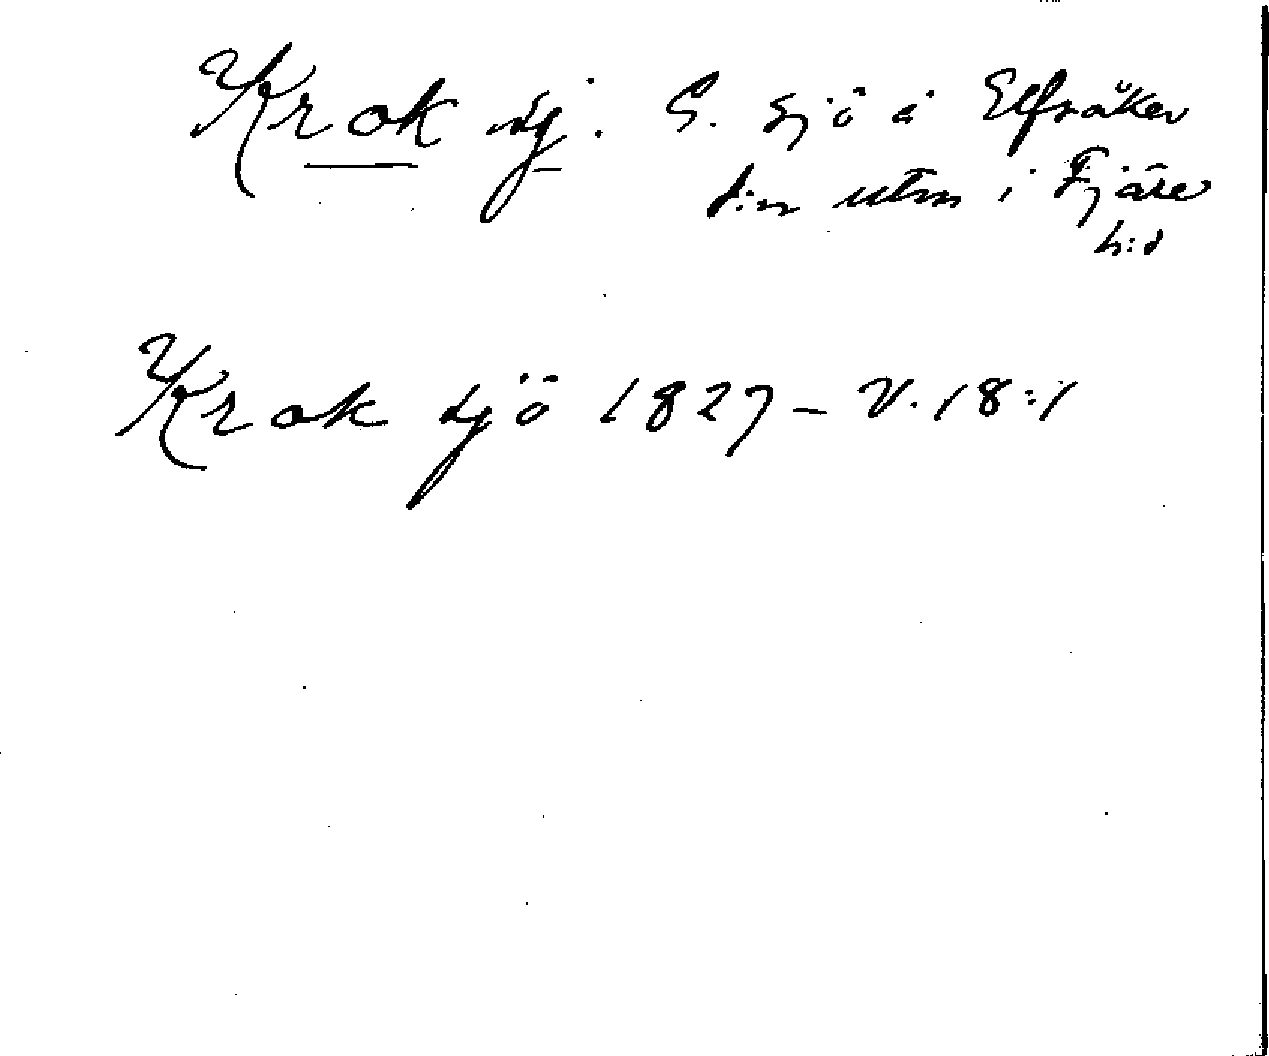 Krok sj. S. Sjö å Elfsåker
s:n utm i Fjäre
h:d
Krok sjö 1827 – V. 18:1